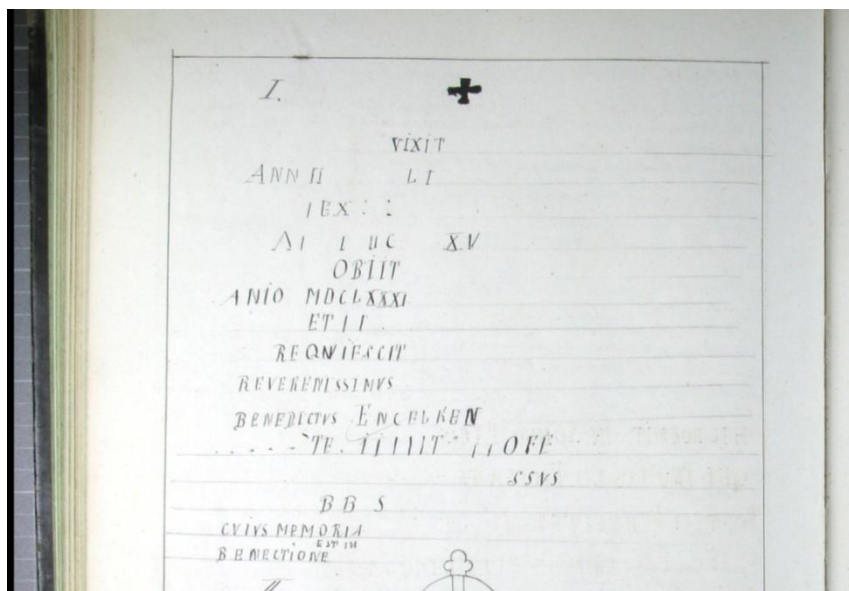 I.
VIXIT
ANN II LI
IEX
AI I IIC XV
OBIIT
ANIO MDCLXXXI
ET I I
REQNIESCIT
REVERENISSIMVS
BENEDICTVS ENCELKEN
TE. IIIIIIT II OFE
SSVS
B B S
CVIVS MEMORIA
EST IN
BENECTIONE
II